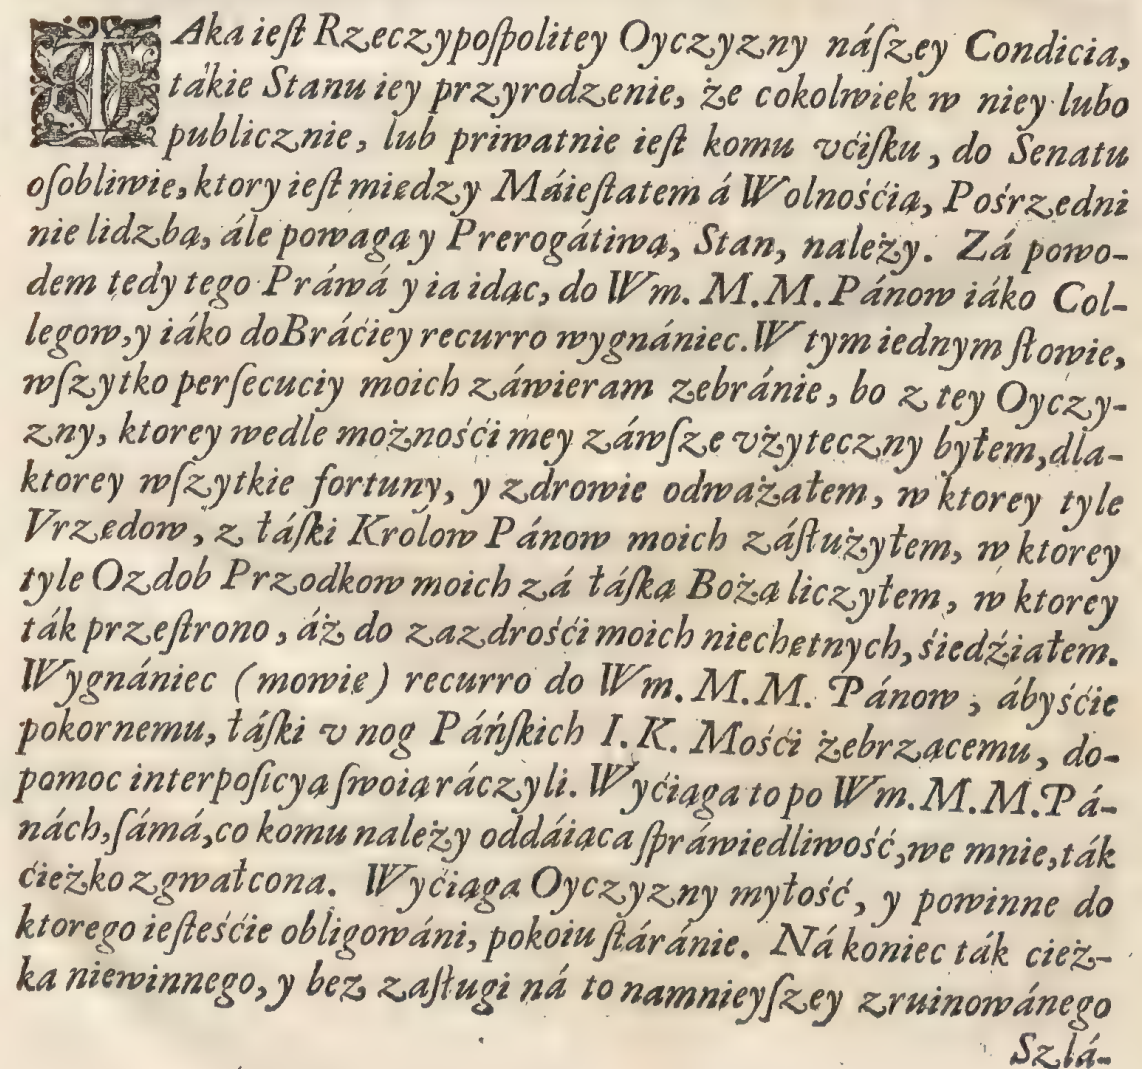 TAka ieſt Rzeczypoſpolitey Oyczyzny náſzey Condicia,
tákie Stanu iey przyrodzenie, że cokolwiek w niey lubo
publicznie, lub priwatnie ieſt komu vćiſku, do Senatu
oſobliwie, ktory ieſt miedzy Máieſtatem á Wolnośćią, Pośrzedni
nie lidzbą, ále powagą y Prerogátiwą, Stan, należy. Zá powo-
dem tedy tego Práwá y ia idąc, do Wm. M.M. Pánow iáko Col-
legow, y iáko do Bráćiey recurro wygnániec. W tym iednym ſłowie,
wſzytko perſecuciy moich záwieram zebránie, bo z tey Oyczy-
zny, ktorey wedle możnośći mey záwſze vżyteczny byłem, dla-
ktorey wſzytkie fortuny, y zdrowie odważałem, w ktorey tyle
Vrzędow, z łáſki Krolow Pánow moich záſłużyłem, w ktorey
tyle Ozdob Przodkow moich zá łáſką Bożą liczyłem, w ktorey
ták przeſtrono, áż do zazdrośći moich niechętnych, śiedźiałem.
Wygnániec (mowię) recurro do Wm. M.M. Pánow, ábyśćie
pokornemu, łáſki v nog Páńſkich I. K. Mośći żebrzącemu, do-
pomoc interpoſicyą ſwoią ráczyli. Wyćiąga to po Wm. M.M. Pá-
nách, ſámá, co komu należy oddáiąca ſpráwiedliwość, we mnie, ták
ćieżko zgwałcona. Wyćiąga Oyczyzny myłość, y powinne do
ktorego ieſteśćie obligowáni, pokoiu ſtáránie. Ná koniec ták cież-
ka niewinnego, y bez zaſługi ná to namnieyſzey zruinowánego
Szlá-